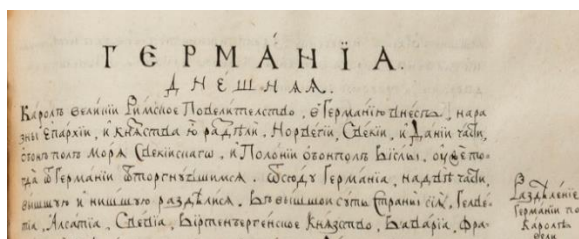 ГЕРМА́НЇА.
ДНЕ́ШНАѦ.
Ка́ролъ вели́кїи Ри́мское Повели́телство, в Герма́нїю внесъ, и на ра
зны Епархїи, и кнѧ́ства ю раздѣли.
Норвегїи, Свекїи, и Данїи части,
мо́рѧ Свекїйскагѡ, и Поло́нїи Вїслы,
гда ѿ Германїи ѿторгнувшимсѧ. Ѿсюду Германїа, на двѣ части,
вышшую и нишшую раздѣлисѧ. Въ вышшои суть страны сїѧ. Гелве
тїа, Алсатїа, Свевїа, Віртенгергенское Кнѧзство, Баварїа, Фра
Раздѣленїе
Германїи по
Каролѣ
вели